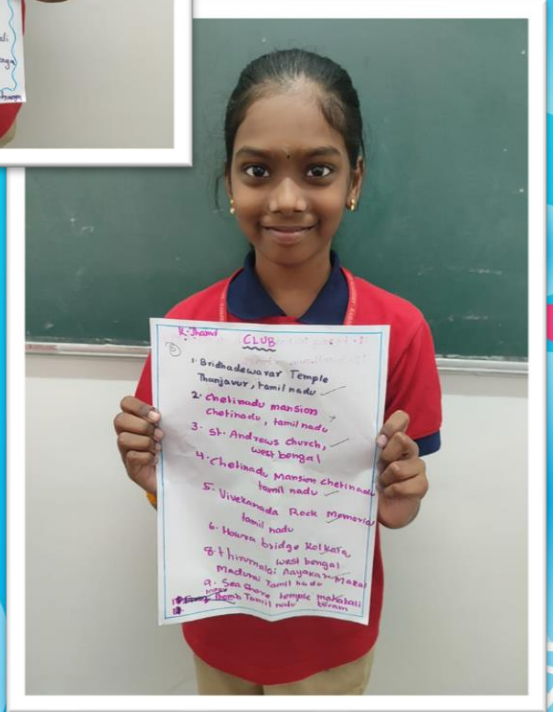 CLUB
1. Bridhadewarar Temple
Thanjavur, tamil nadu
2. chetinadu mansion
Chetinadu, tamil nadu
3. St. Andrews church,
west bengal
4. Chetinadu Mansion chetinadu
tamil nadu
5. Vivekanada Rock Memoria
tamil nadu
6. Howra bridge Kolkata
west bengal
8. thirumalai Aayakar Mahal
Madurai Tamil nadu
9. Sea Shore temple mahabali
Tamil nadu buram